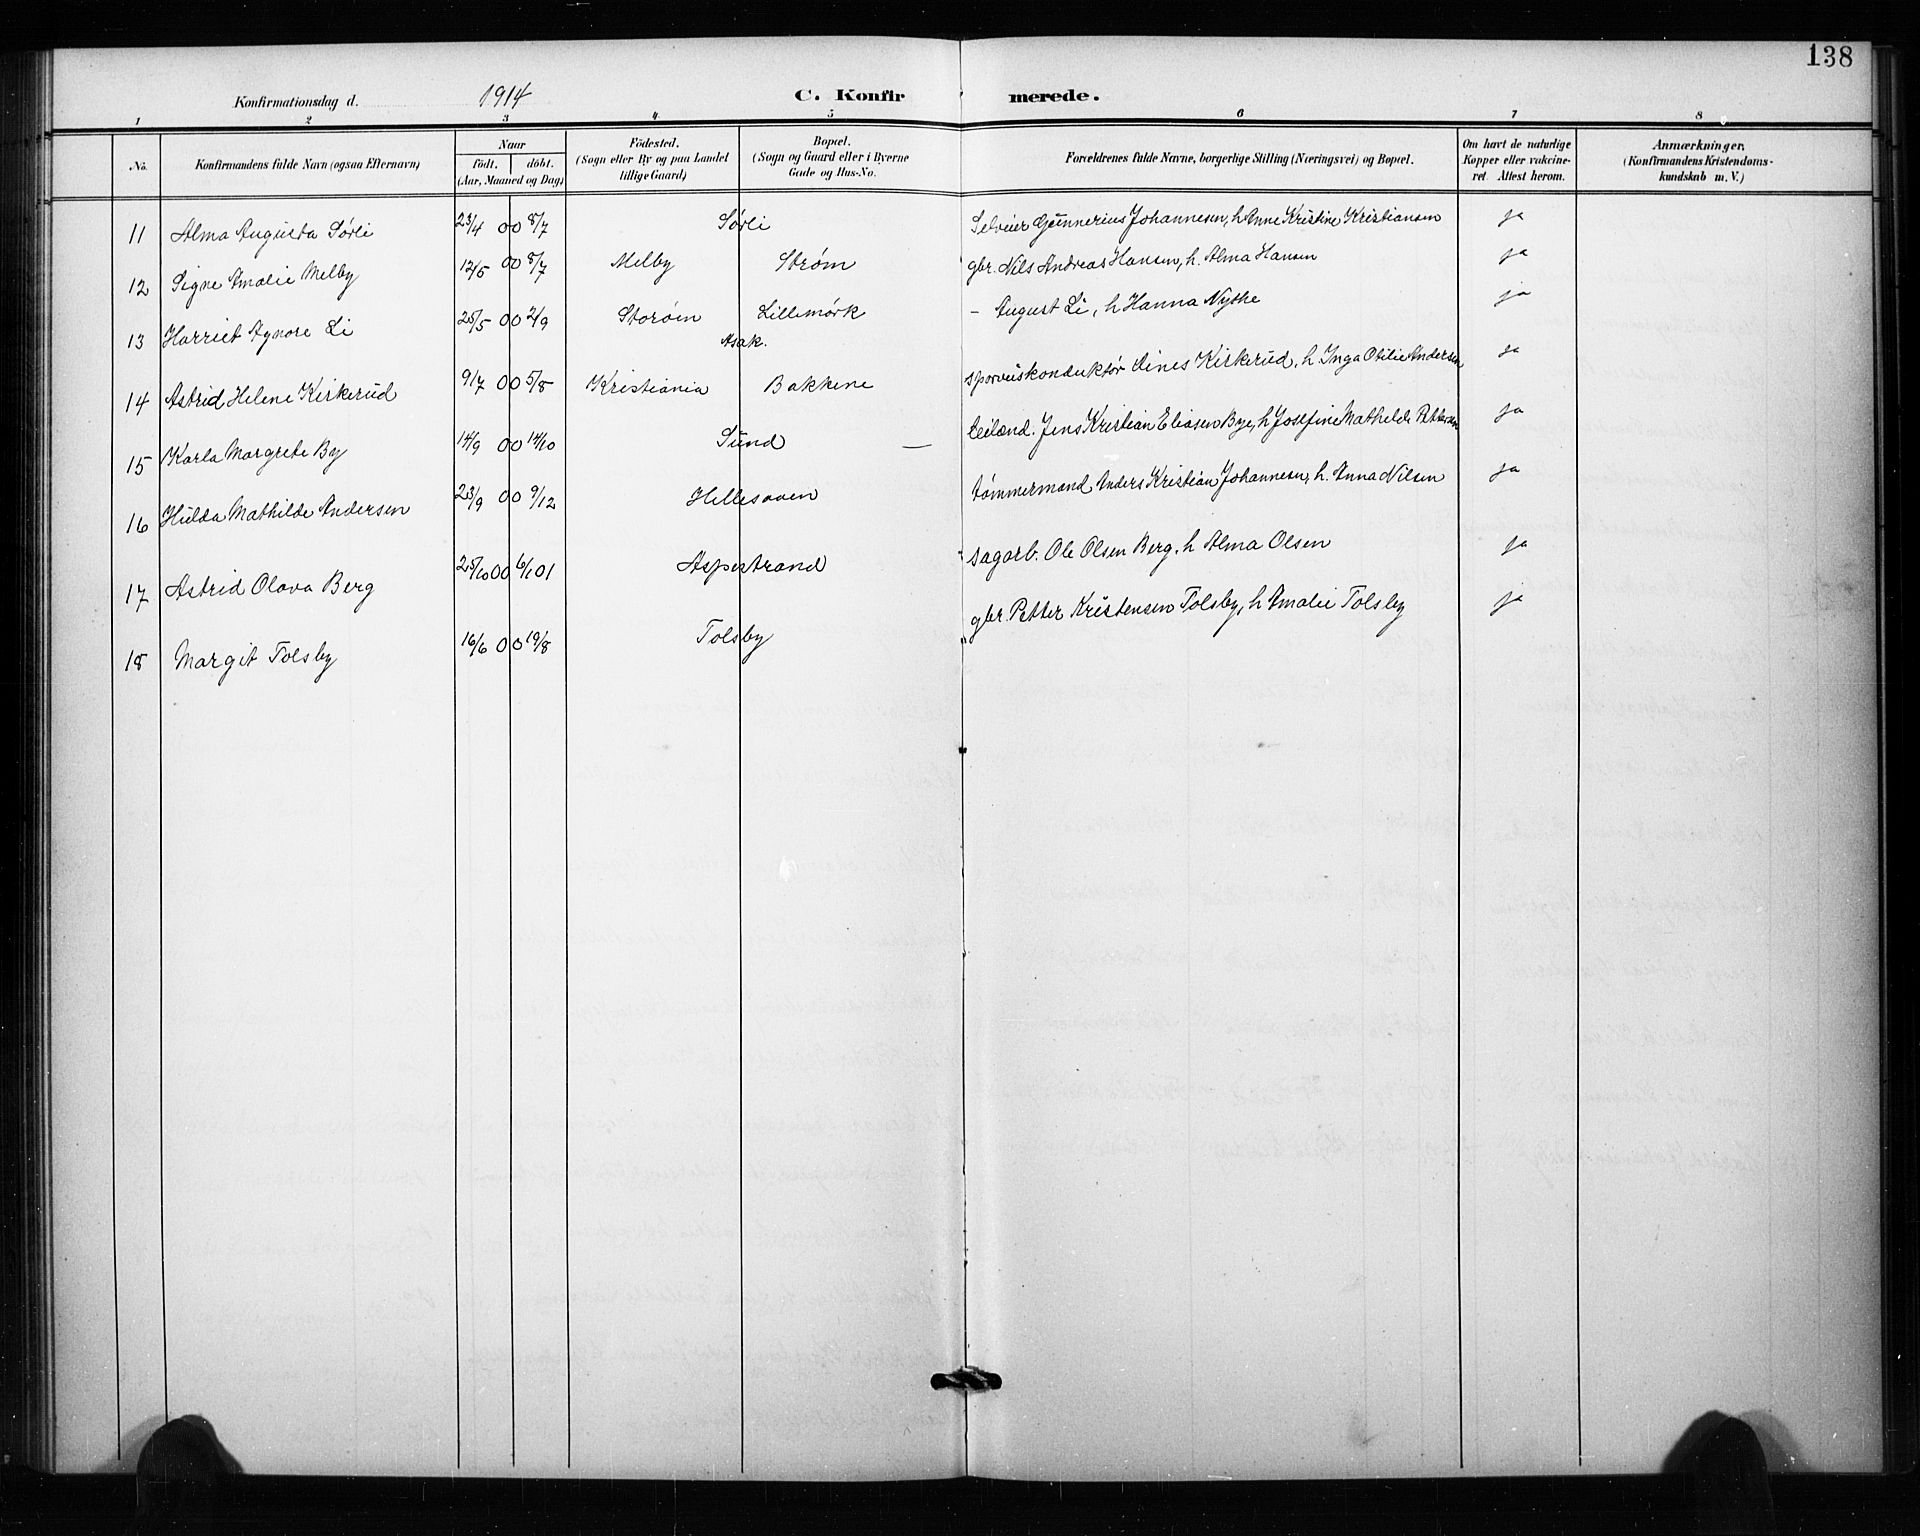 138
Konfirmationsdag d. 1914 C. Konfirmerede.
1 2 3 4 5 6 7 8
No. Konfirmandens fulde Navn (ogsaa Efternavn) Naar födt. döbt. (Aar, Maaned og Dag) Födested. (Sogn eller By og paa Landet tillige Gaard) Bopæl. (Sogn og Gaard eller i Byerne Gade og Hus-No. Forældrenes fulde Navne, borgerlige Stilling (Næringsvei) og Bopæl. Om havt de naturlige Kopper eller vakcineret. Attest herom. Anmærkninger, (Konfirmandens Kristendomskundskab m. V.)
11 Alma Augusta Sørli 23/4 00 8/7 Sørli Selveier Gunnerius Johannesen, h. Anne Kristine Kristiansen ja
12 Signe Amalie Melby 12/5 00 8/7 Melby Strøm gbr. Nils Andreas Hansen, h. Alma Hansen ja
13 Harriet Agnore Li 25/5 00 2/9 Storøen Lillemørk - August Li, h Hanna ja
Asak.
14 Astrid Helene Kirkerud 9/7 00 5/8 Kristiania Bakkene sporveiskonduktør Kirkerud, h. Inga Otilie Andersen ja
15 Karla Margrete By 14/9 00 14/10 Sund — leilænd. Jens Kristian Eliasen Bye, h Josefine Mathilde ja
16 Hulda Mathilde Andersen 23/9 00 9/12 tømmermand Anders Kristian Johannesen, h. Anna Nilsen ja
17 Astrid Olava Berg 25/10 00 6/1 01 Aspestrand sagarb. Ole Olsen Berg, h Alma Olsen ja
18 Margit Tolsby 16/6 00 19/8 Tolsby gbr. Petter Kristensen Tolsby, h Amalie Tolsby ja